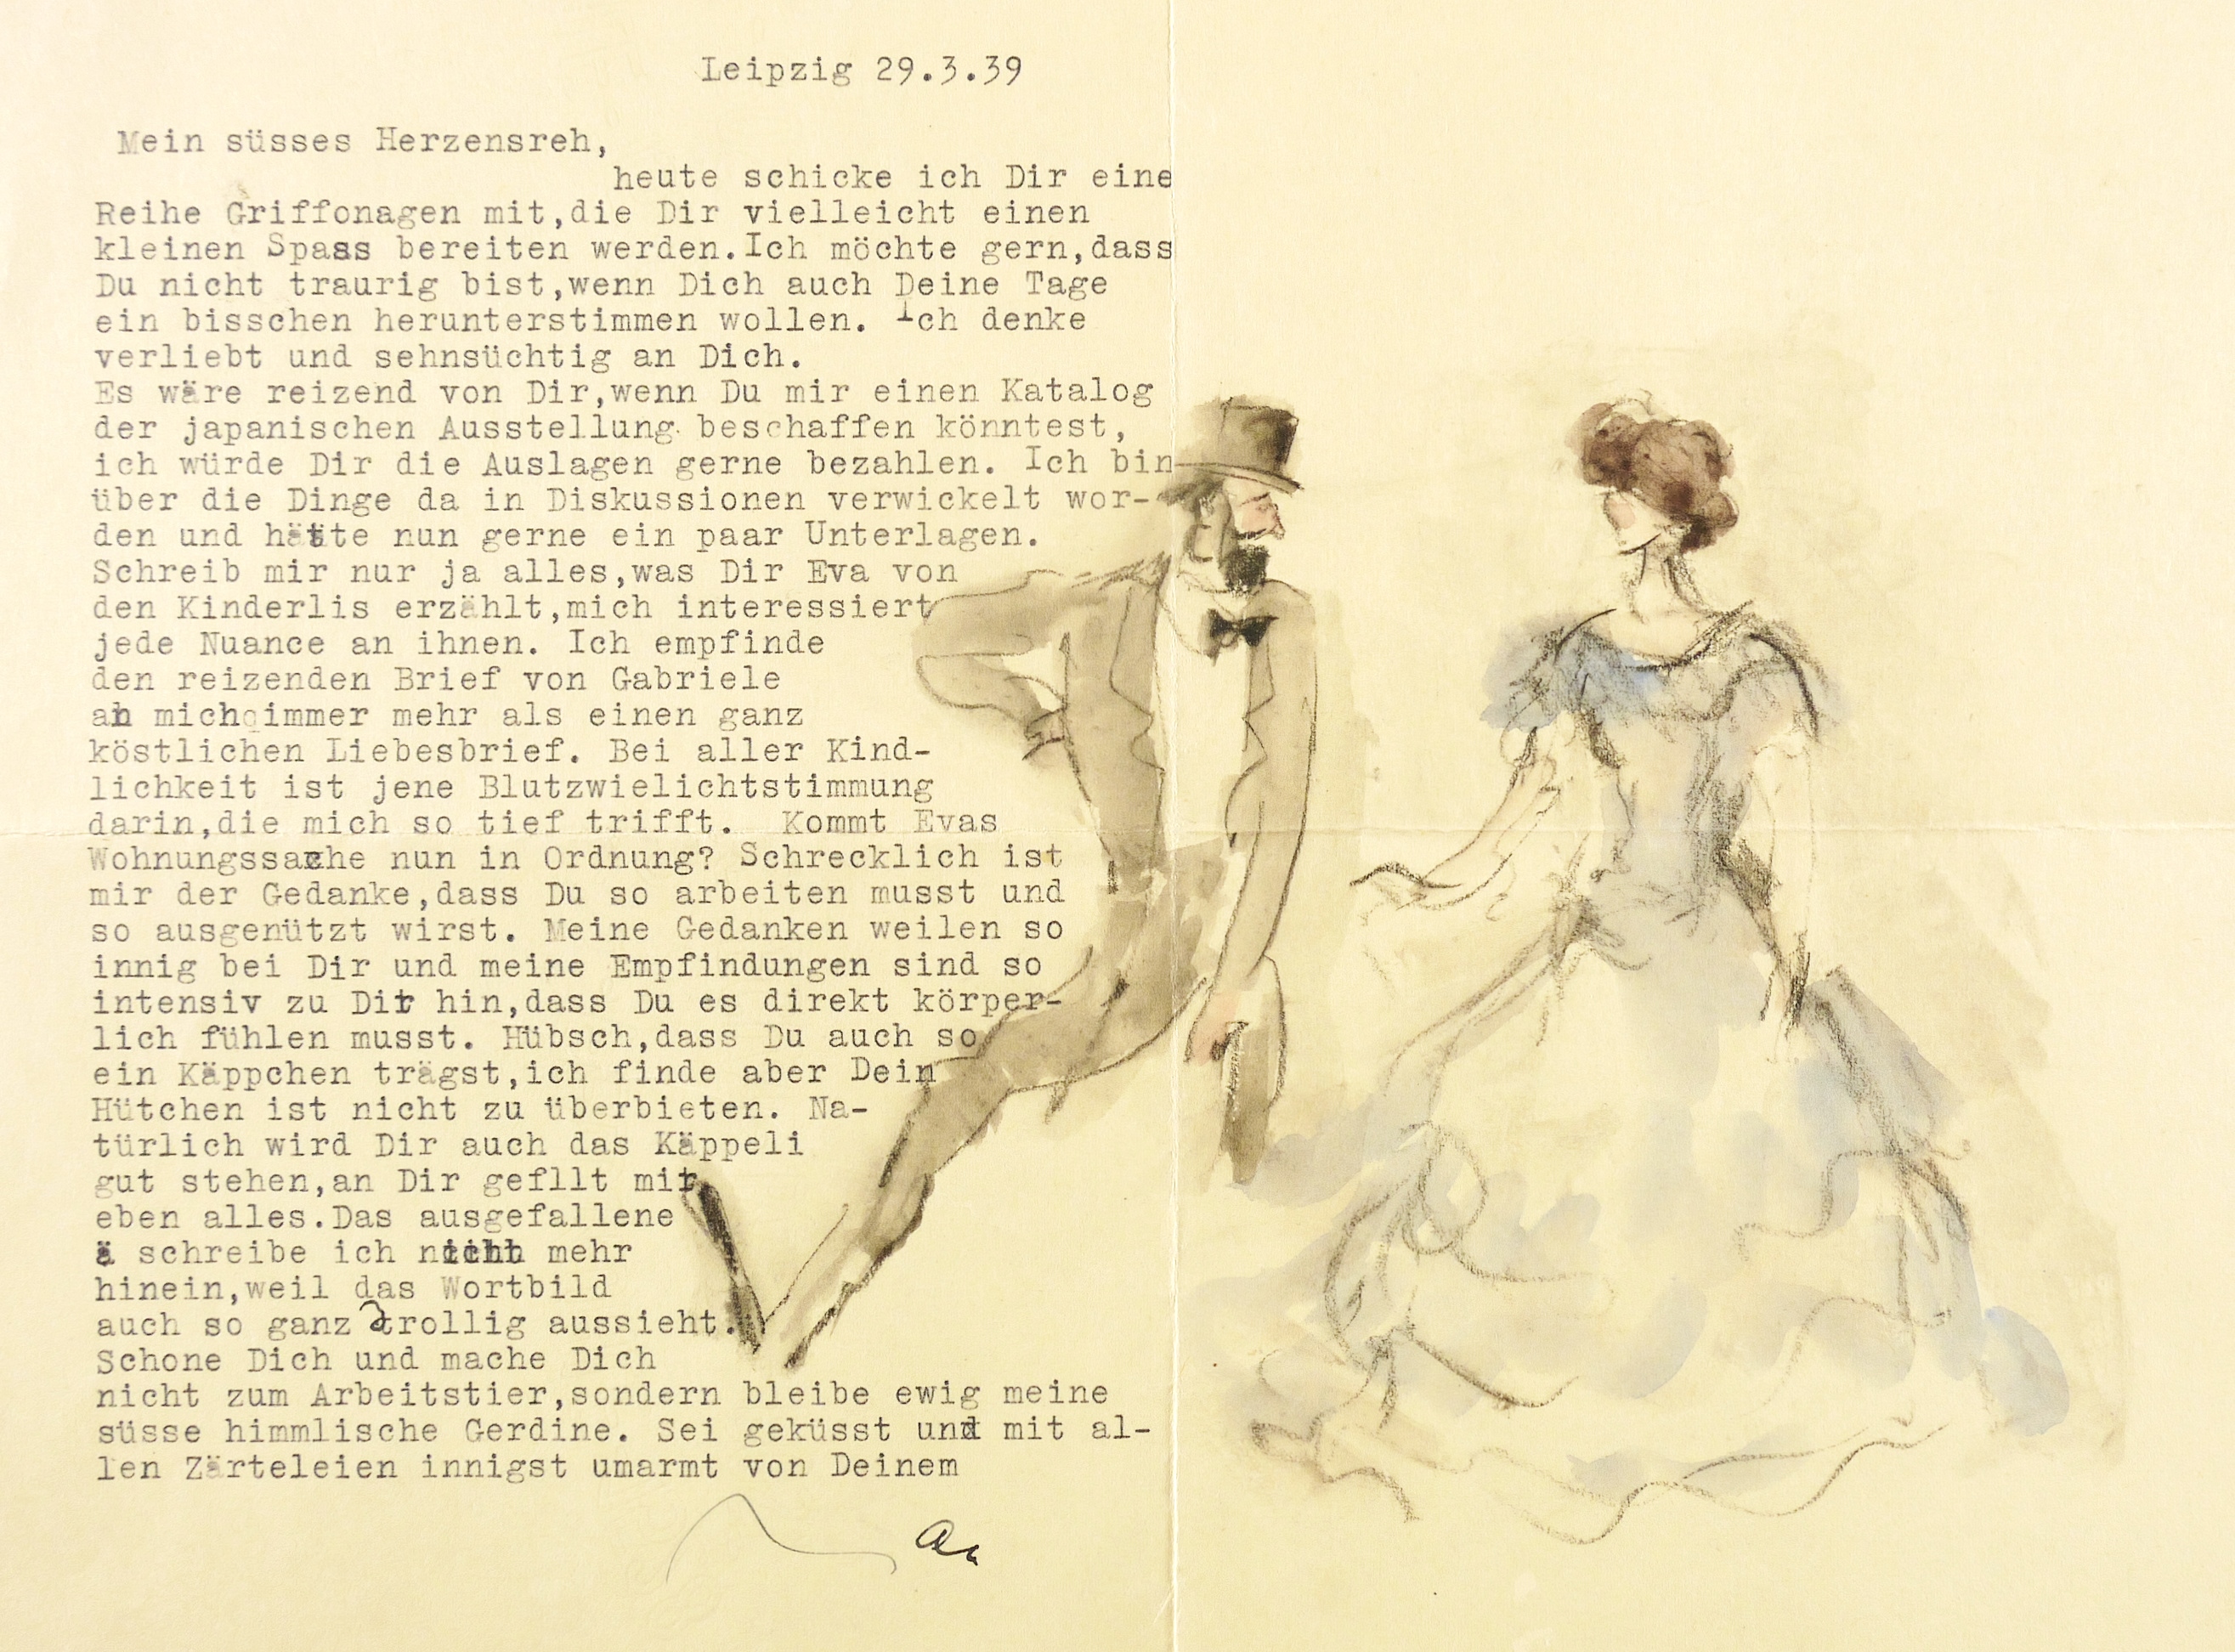 Leipzig 29.3.39
Mein süsses Herzensreh,
heute schicke ich Dir eine
Reihe Griffonagen mit,die Dir vielleicht einen
kleinen Spass bereiten werden.Ich möchte gern,dass
Du nicht traurig bist,wenn Dich auch Deine Tage
ein bisschen herunterstimmen wollen. Ich denke
verliebt und sehnsüchtig an Dich.
Es wäre reizend von Dir,wenn Du mir einen Katalog
der japanischen Ausstellung beschaffen könntest,
ich würde Dir die Auslagen gerne bezahlen. Ich bin
über die Dinge da in Diskussionen verwickelt wor-
den und hätte nun gerne ein paar Unterlagen.
Schreib mir nur ja alles,was Dir Eva von
den Kinderlis erzählt,mich interessiert
jede Nuance an ihnen. Ich empfinde
den reizenden Brief von Gabriele
an mich immer mehr als einen ganz
köstlichen Liebesbrief. Bei aller Kind-
lichkeit ist jene Blutzwielichtstimmung
darin,die mich so tief trifft. Kommt Evas
Wohnungssache nun in Ordnung? Schrecklich ist
mir der Gedanke,dass Du so arbeiten musst und
so ausgenützt wirst. Meine Gedanken weilen so
innig bei Dir und meine Empfindungen sind so
intensiv zu Dir hin,dass Du es direkt körper-
lich fühlen musst. Hübsch,dass Du auch so
ein Käppchen trägst,ich finde aber Dein
Hütchen ist nicht zu überbieten. Na-
türlich wird Dir auch das Käppeli
gut stehen,an Dir gefllt mir
eben alles.Das ausgefallene
ä schreibe ich nicht mehr
hinein,weil das Wortbild
auch so ganz drollig aussieht.
Schone Dich und mache Dich
nicht zum Arbeitstier,sondern bleibe ewig meine
süsse himmlische Gerdine. Sei geküsst und mit al-
len Zärteleien innigst umarmt von Deinem